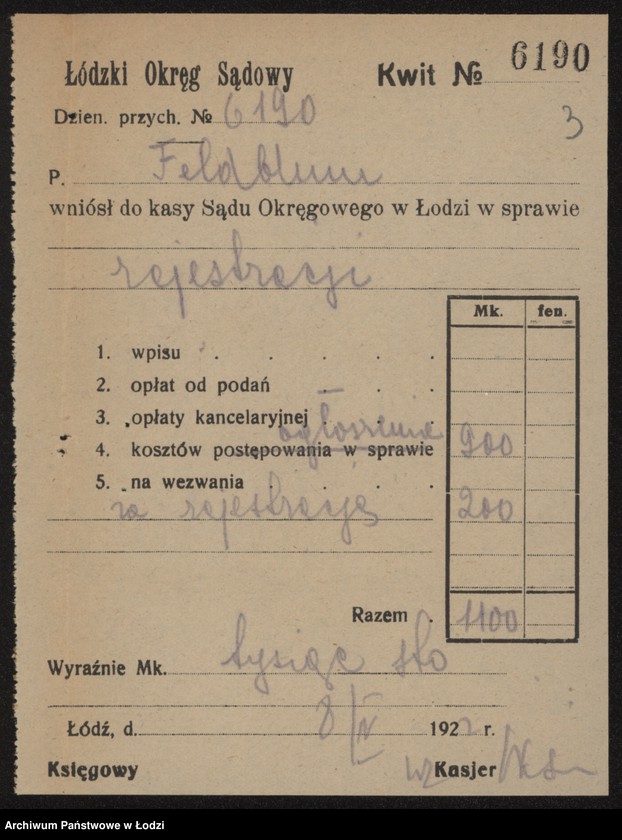 Łódzki Okręg Sądowy Kwit № 6190
Dzien. przych. № 6190
3
P. Feldblum
wniósł do kasy Sądu Okręgowego w Łodzi w sprawie
rejestracji
Mk. fen.
1. wpisu . . . . .
2. opłat od podań . .
3. opłaty kancelaryjnej .
ogłoszenia
4. kosztów postępowania w sprawie 900
5. na wezwania . . . .
za rejestrację 200
Razem . 1100
Wyraźnie Mk. tysiąc sto
Łódź, d. 8/IV 1922 r.
Księgowy wz Kasjer
Archiwum Państwowe w Łodzi